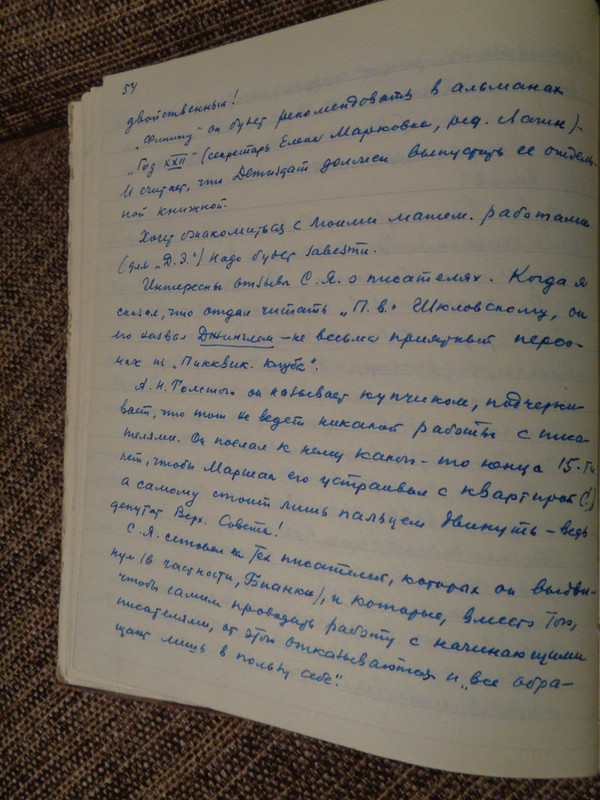 54
двойственны!
„Финиту" он будет рекомендовать в альманах
„Год XXII" (секретарь Елена Марковна, ред. Лагин).
И считает, что Детиздат должен выпустить ее отдель-
ной книжной.
Хочет ознакомиться с моими матем. работами
(для „Д.Э.") Надо будет завезти.
Интересны отзывы С.Я. о писателях. Когда я
сказал, что отдал читать „П.в." Шкловскому, он
его назвал Джинглем – не весьма приятный персо-
наж из „Пикквик. клуба".
А.Н. Толстого он называет купчиком, подчерки-
вает, что тот не ведет никакой работы с писа-
телями. Он послал к нему какого-то юнца 15-ти
лет, чтобы Маршак его устраивал с квартирой (!)
а самому стоит лишь пальцем двинуть – ведь
депутат Верх. Совета!
С.Я. сетовал на тех писателей, которых он выдви-
нул (в частности, Бианки), и которые, вместо того,
чтобы самим проводить работу с начинающими
писателями, от этого отказываются и „все обра-
щают лишь в пользу себе".